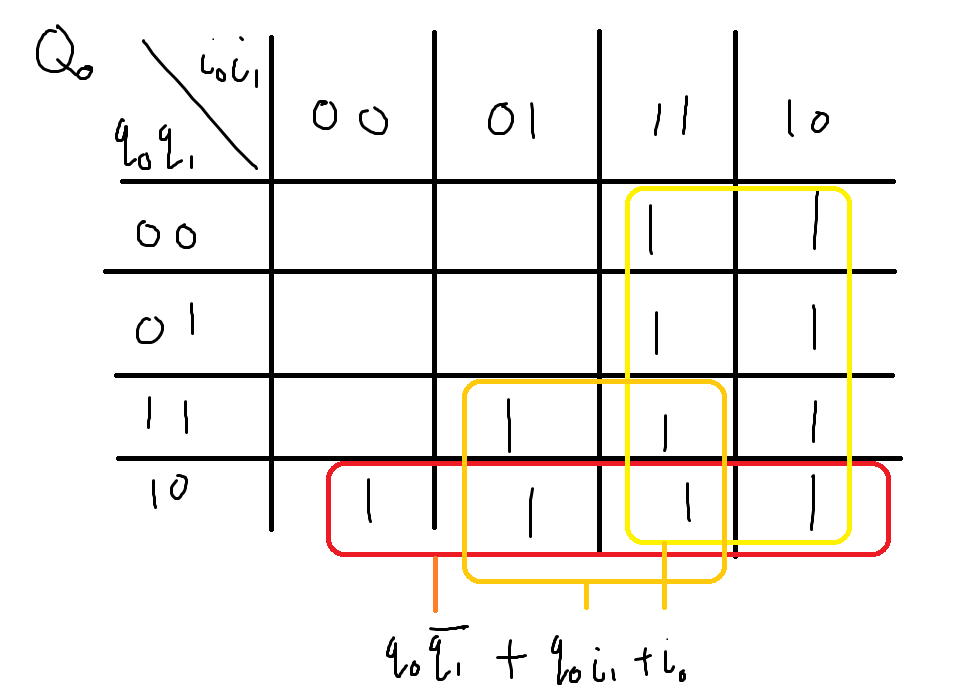 Q₀ i₀i₁
q₀q₁ 00 01 11 10
00 1 1
01 1 1
11 1 1 1
10 1 1 1 1
q₀q̅₁ + q₀i₁ + i₀